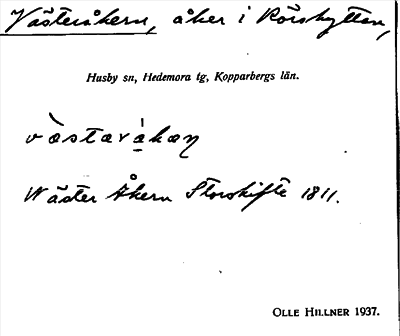 Västeråkern, åker i Rörshyttan,
Husby sn, Hedemora tg, Kopparbergs län.
Wäster Åkern Storskifte 1811.
OLLE HILLNER 1937.